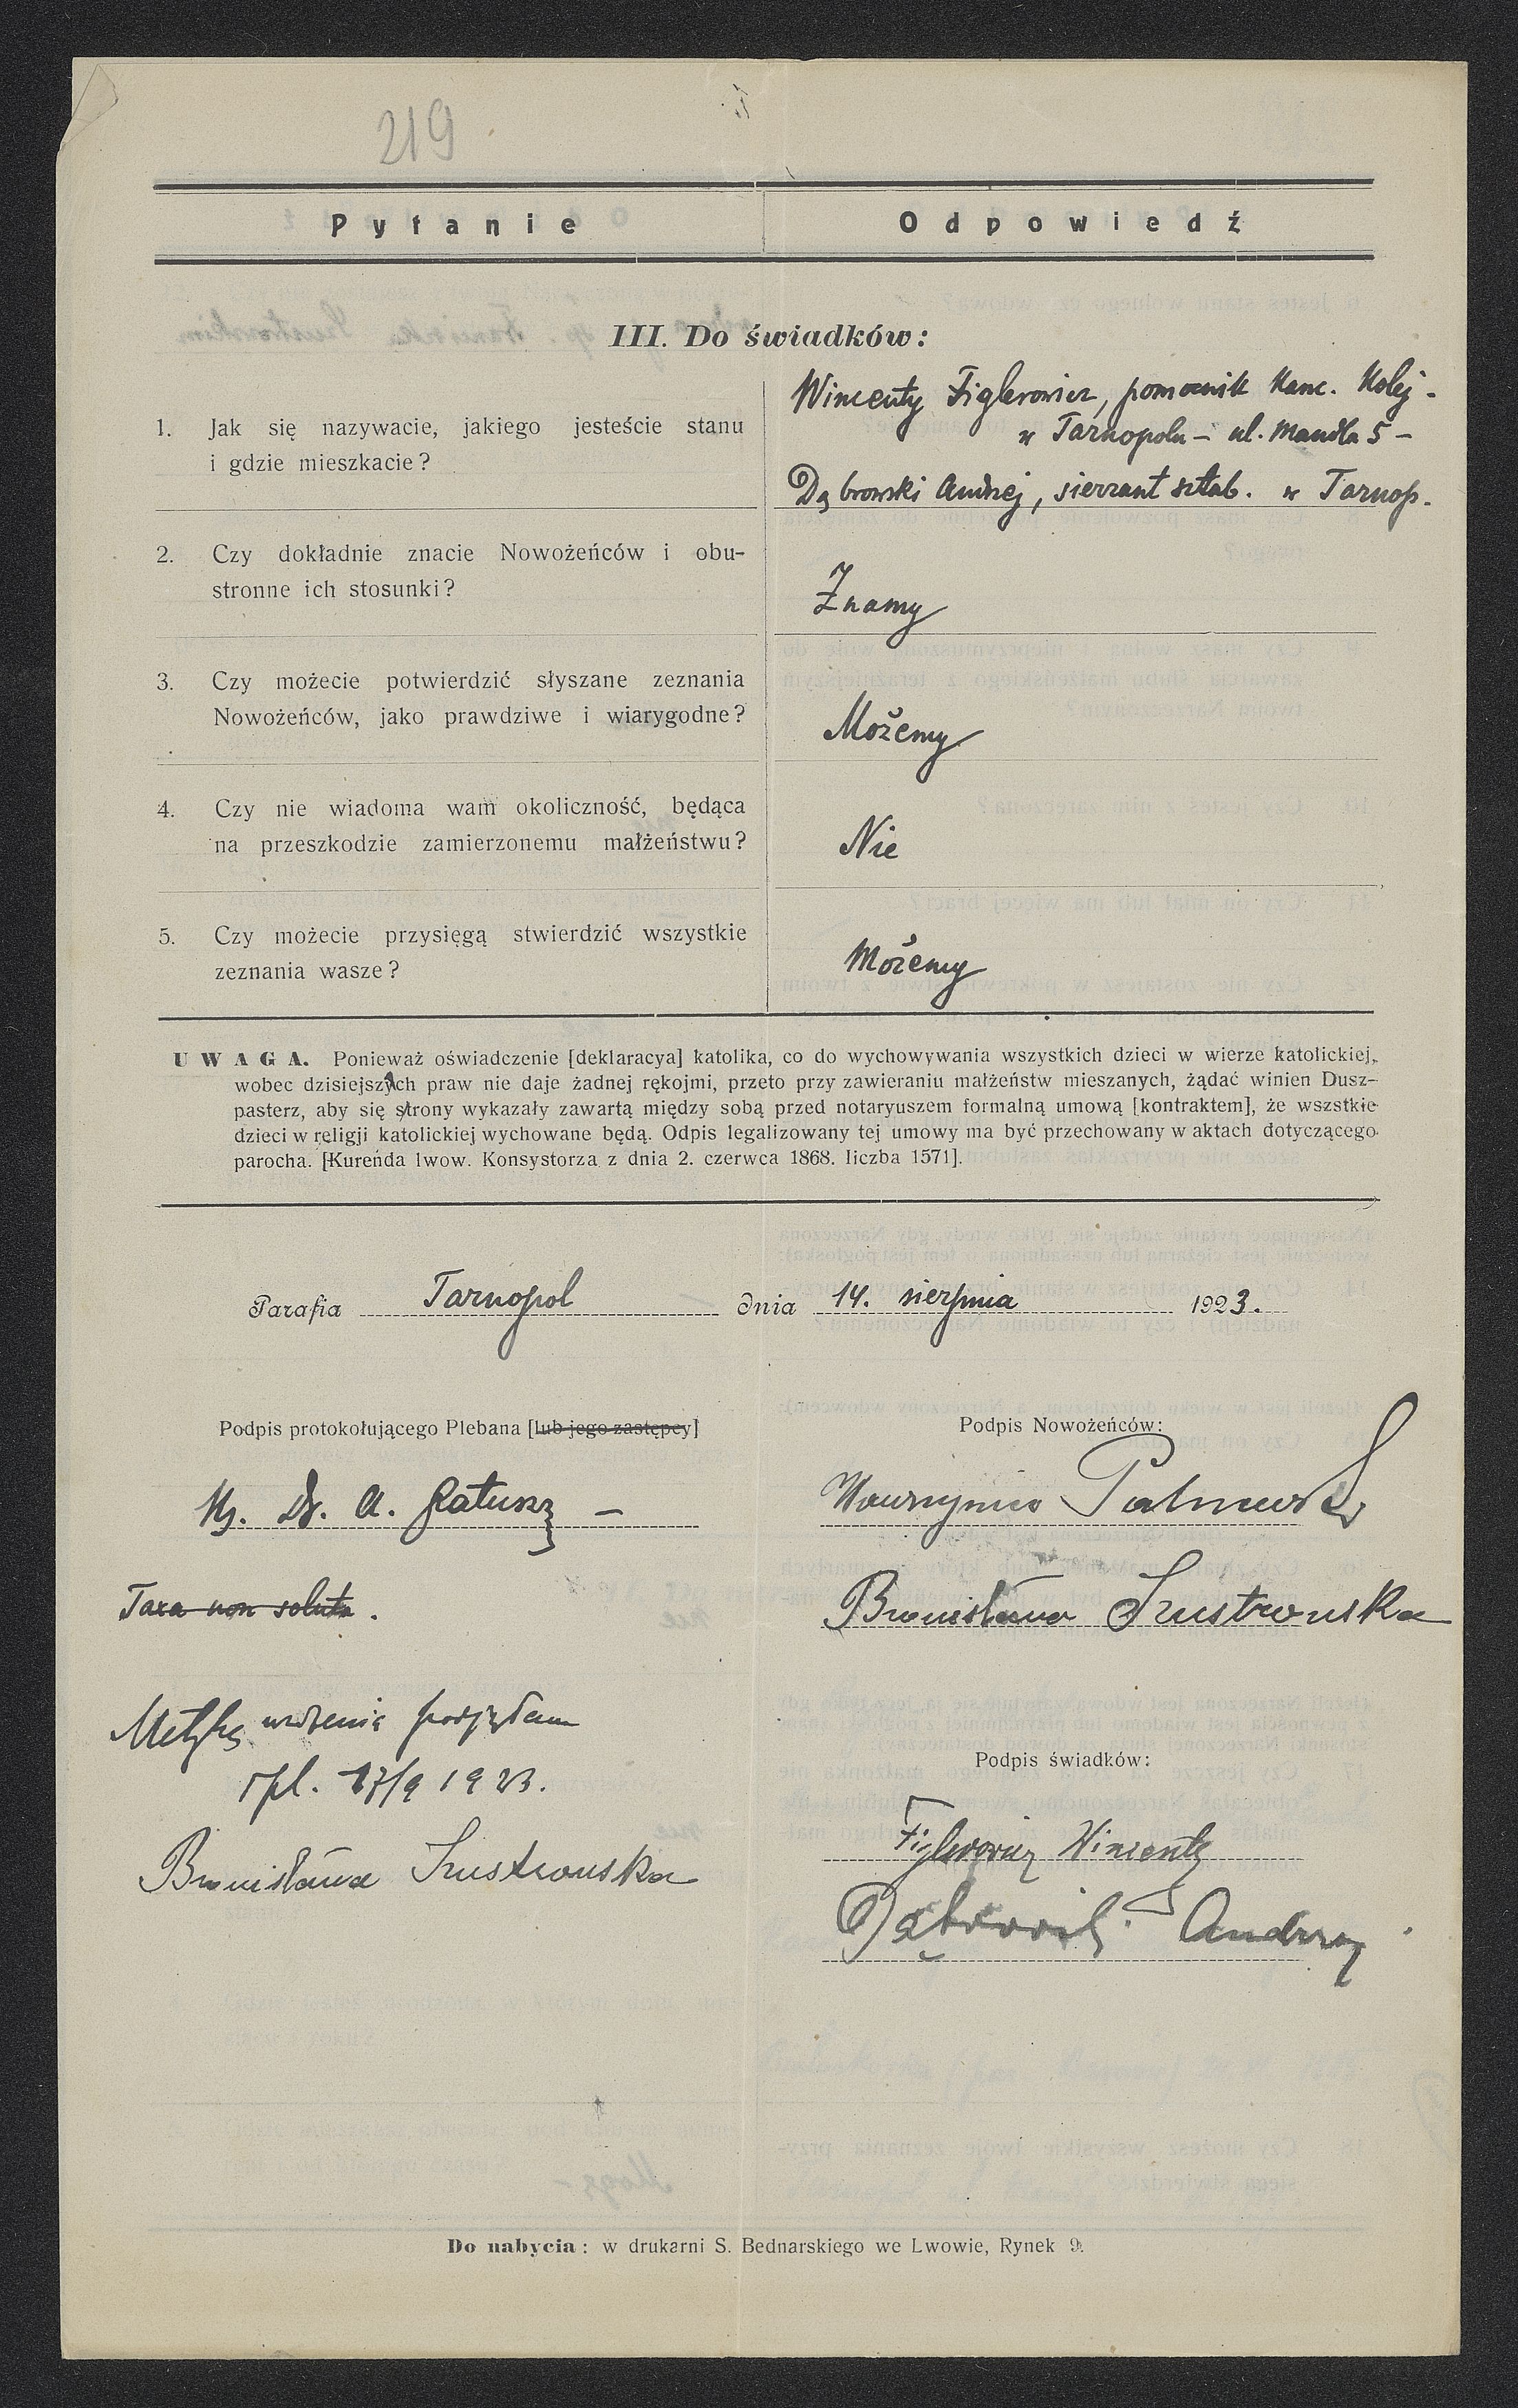 219
Pytanie Odpowiedź
III. Do świadków:
1. Jak się nazywacie, jakiego jesteście stanu
i gdzie mieszkacie?
Wincenty Figlerowicz, pomocnik Kanc. Kolej.
w Tarnopolu – ul. Mandla 5 –
Dąbrowski Andrzej, sierżant sztab. w Tarnop.
2. Czy dokładnie znacie Nowożeńców i obu-
stronne ich stosunki?
Znamy
3. Czy możecie potwierdzić słyszane zeznania
Nowożeńców, jako prawdziwe i wiarygodne?
Możemy
4. Czy nie wiadoma wam okoliczność, będąca
na przeszkodzie zamierzonemu małżeństwu?
Nie
5. Czy możecie przysięgą stwierdzić wszystkie
zeznania wasze?
Możemy
UWAGA. Ponieważ oświadczenie [deklaracya] katolika, co do wychowywania wszystkich dzieci w wierze katolickiej,
wobec dzisiejszych praw nie daje żadnej rękojmi, przeto przy zawieraniu małżeństw mieszanych, żądać winien Dusz-
pasterz, aby się strony wykazały zawartą między sobą przed notaryuszem formalną umową [kontraktem], że wszstkie
dzieci w religji katolickiej wychowane będą. Odpis legalizowany tej umowy ma być przechowany w aktach dotyczącego
parocha. [Kurenda lwow. Konsystorza z dnia 2. czerwca 1868. liczba 1571].
Parafia Tarnopol dnia 14. sierpnia 1923.
Podpis protokołującego Plebana [lub jego zastępcy]
Ks. Dr. A. Ratusz –
Taxa non soluta.
Metrykę urodzenia podjęłam
Tpl. 17/9 1923.
Bronisława Szustrowska
Podpis Nowożeńców:
Wawrzyniec
Bronisława Szustrowska
Podpis świadków:
Figlerowicz Wincenty
Dąbrowski Andrzej
Do nabycia: w drukarni S. Bednarskiego we Lwowie, Rynek 9.